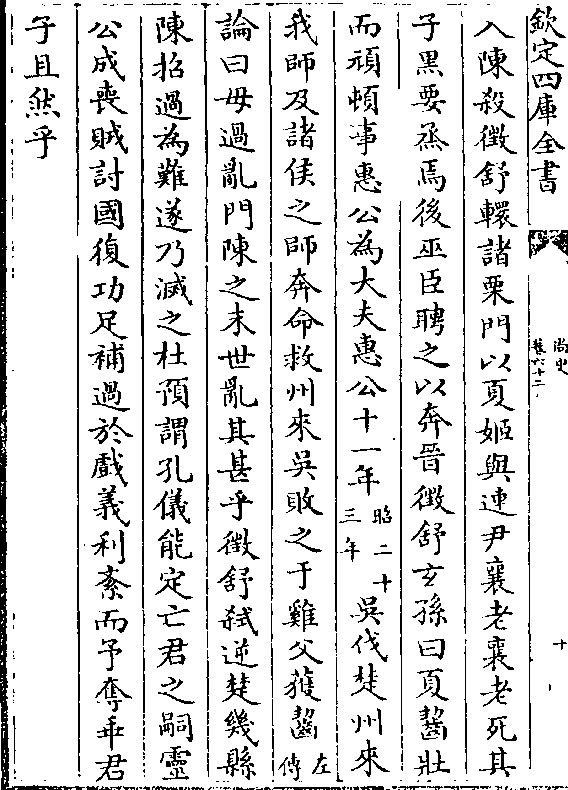 欽定四庫全書
尚史
卷六十二
十
入陳殺徵舒轘諸栗門以夏姬與連尹襄老襄老死其
子黑要烝焉後巫臣聘之以奔晉徵舒玄孫曰夏齧壯
而頑頓事惠公為大夫惠公十一年昭二十三年吳伐楚州來
我師及諸侯之師奔命救州來吳敗之于雞父獲齧左傳
論曰毋過亂門陳之末世亂其甚乎徵舒弑逆楚幾縣
陳招過為難遂乃滅之杜預謂孔儀能定亡君之嗣靈
公成喪賊討國復功足補過於戲義利紊而予奪乖君
子且然乎